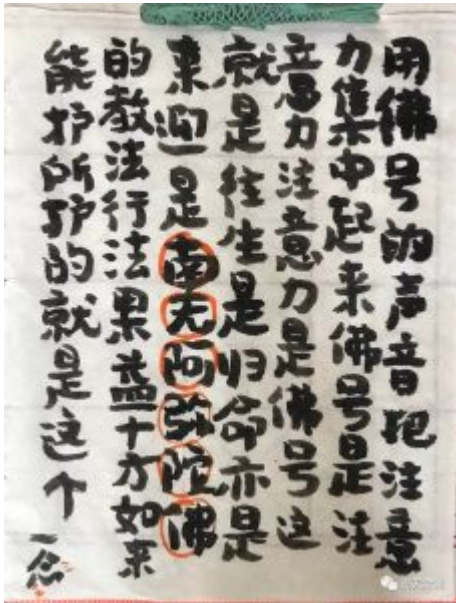 用佛号的声音把注意
力集中起来佛号是注
意力注意力是佛号这
就是往生是归命亦是
来迎是南无阿弥陀佛
的教法行法果益十方如来
能护所护的就是这个
一念